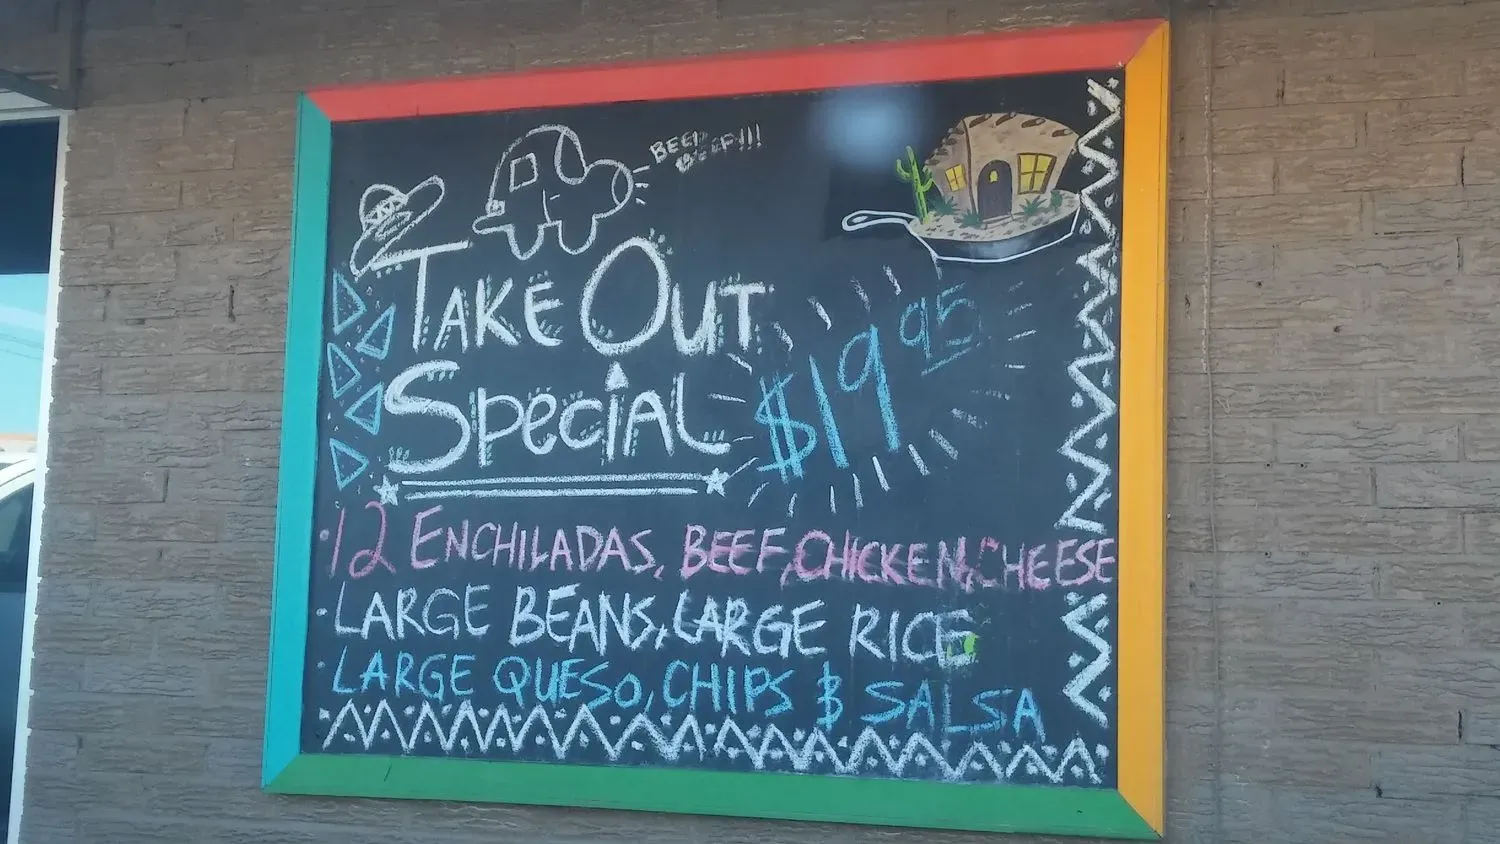 BEEP
BEEP!!!
TAKE OUT
SPECIAL
$19 95
• 12 ENCHILADAS, BEEF, CHICKEN, CHEESE
• LARGE BEANS, LARGE RICE
• LARGE QUESO, CHIPS & SALSA